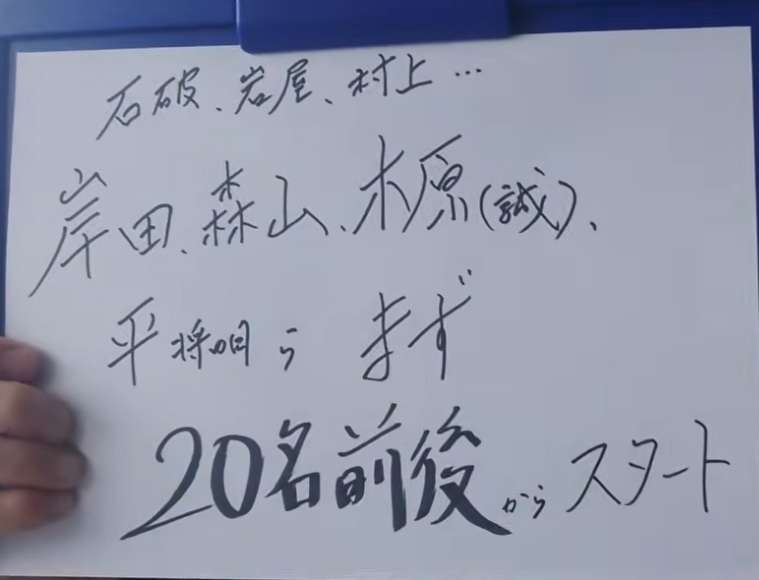 石破、岩屋、村上…
岸田、森山、木原(誠)、
平将明ら まず
20名前後からスタート